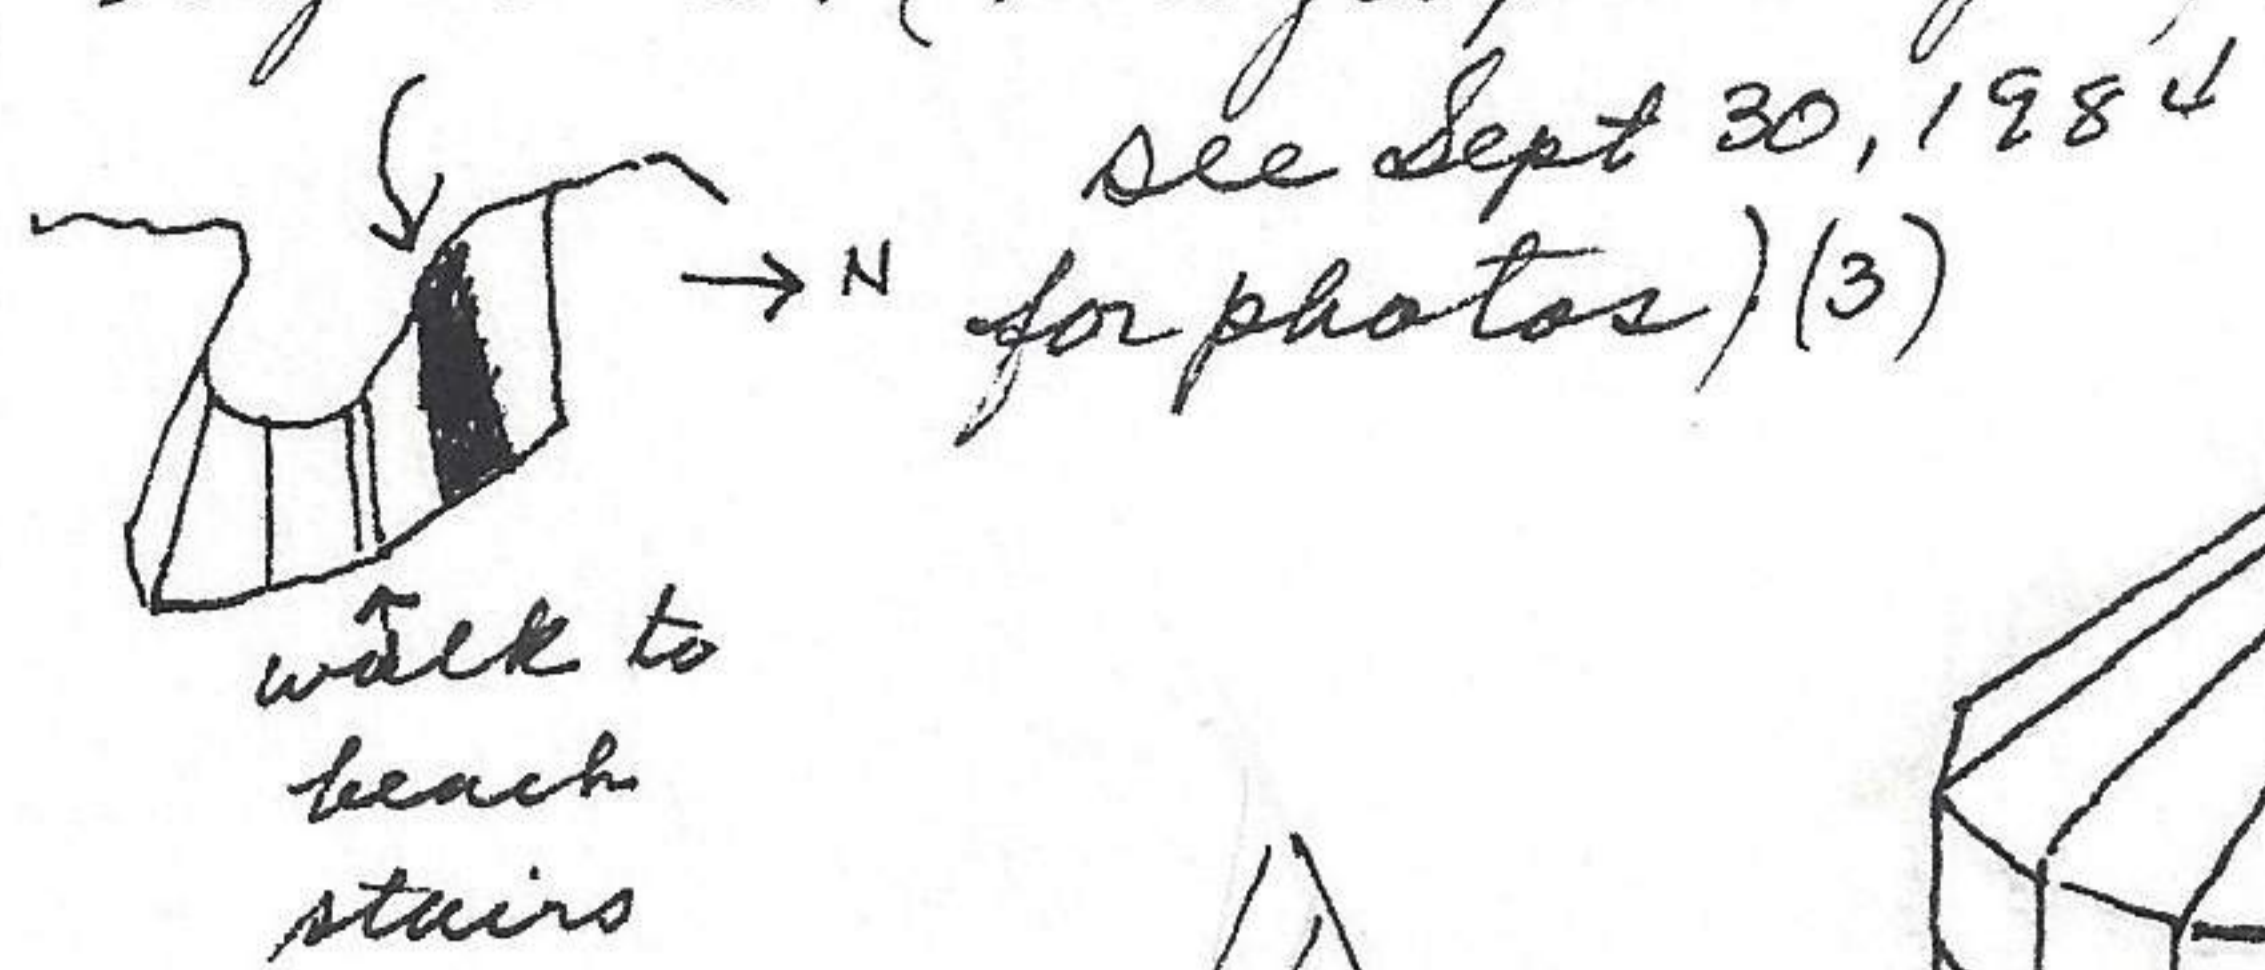 see Sept 30, 1984
for photos) (3)
→ N
walk to
beach
stairs